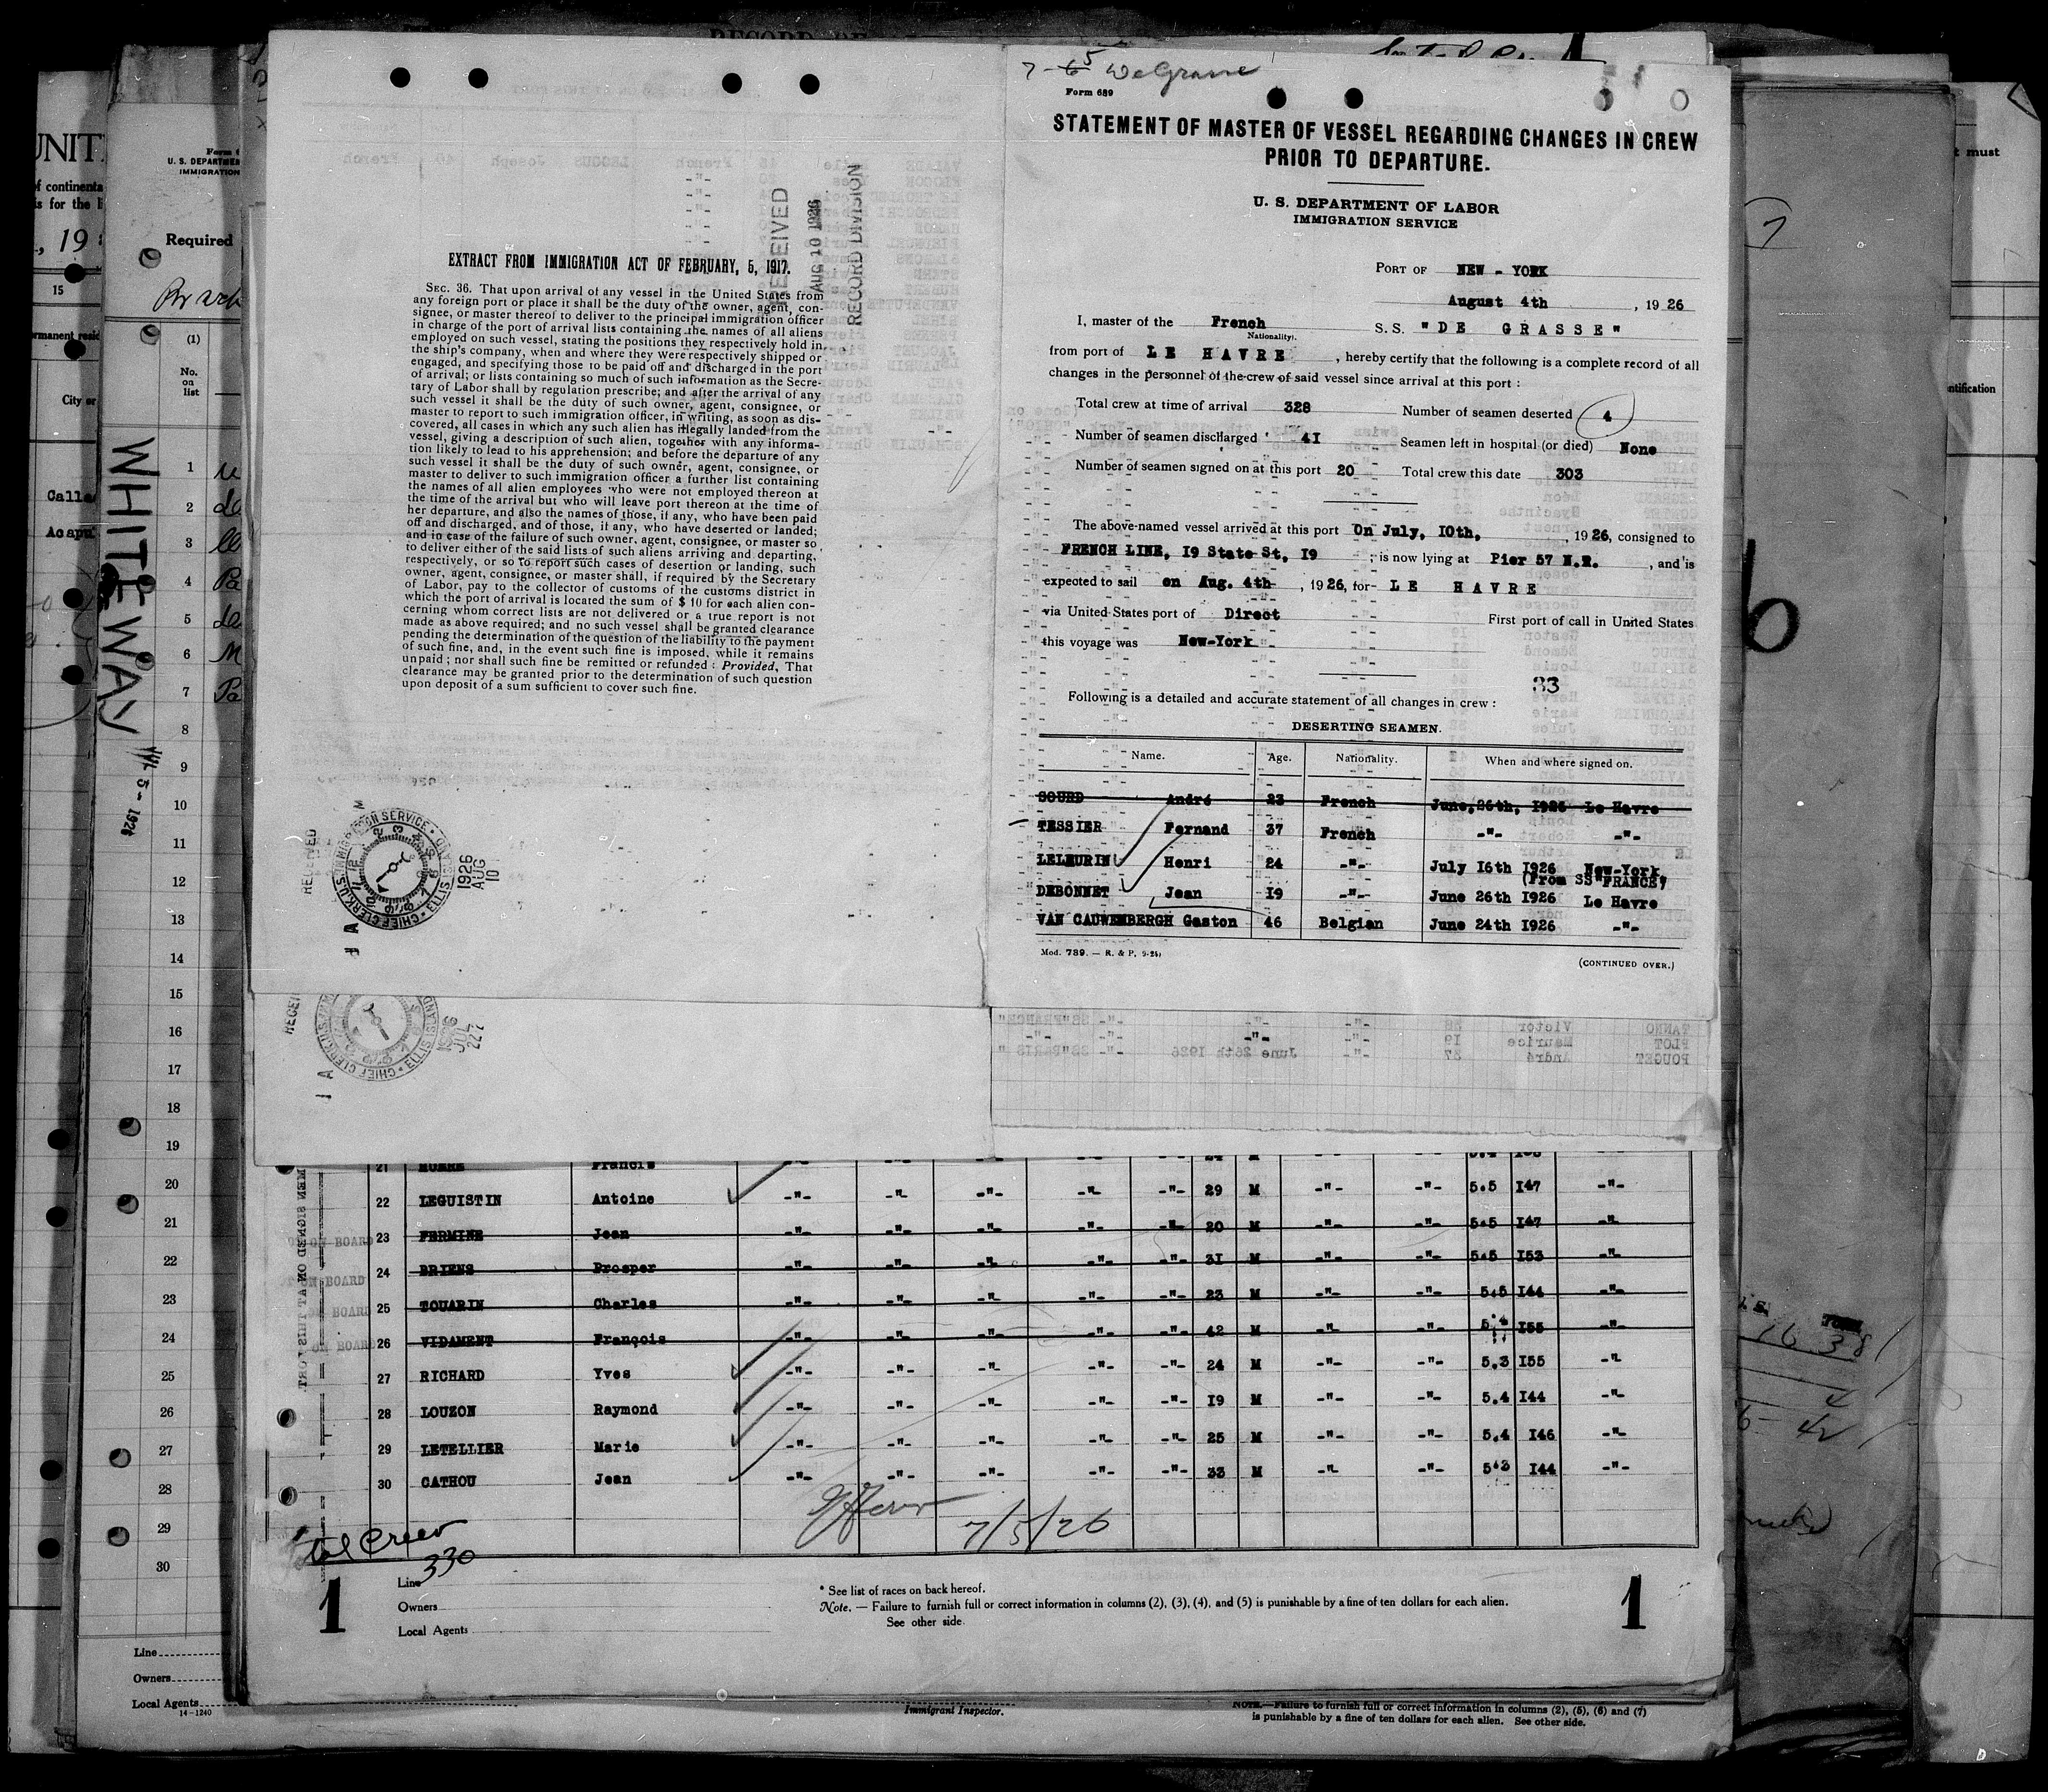 7-5 DeGrasse
Form 689
STATEMENT OF MASTER OF VESSEL REGARDING CHANGES IN CREW
PRIOR TO DEPARTURE.
U. S. DEPARTMENT OF LABOR
IMMIGRATION SERVICE
PORT OF NEW - YORK
August 4th , 1926
I, master of the French S.S. "DE GRASSE"
Nationality).
from port of LE HAVRE , hereby certify that the following is a complete record of all
changes in the personnel of the crew of said vessel since arrival at this port :
Total crew at time of arrival 328 Number of seamen deserted 4
Number of seamen discharged 41 Seamen left in hospital (or died) None
Number of seamen signed on at this port 20 Total crew this date 303
The above-named vessel arrived at this port On July, 10th, , 1926, consigned to
FRENCH LINE, I9 State St, I9 ; is now lying at Pier 57 N.R. , and is
expected to sail on Aug. 4th , 1926, for LE HAVRE
via United States port of Direct First port of call in United States
this voyage was New-York
33
Following is a detailed and accurate statement of all changes in crew :
DESERTING SEAMEN.
Name. Age. Nationality. When and where signed on.
SOURD André 23 French June, 26th, I926 Le Havre
TESSIER Fernand 37 French -"- -"-
LELEURIN Henri 24 -"- July I6th I926 New-York
(From SS"FRANCE")
DEBONNET Jean I9 -"- June 26th I926 Le Havre
VAN CAUWENBERGH Gaston 46 Belgian June 24th I926 -"-
Mod. 789. — R. & P, 9-24.
(CONTINUED OVER.)
EXTRACT FROM IMMIGRATION ACT OF FEBRUARY, 5, 1917.
SEC. 36. That upon arrival of any vessel in the United States from
any foreign port or place it shall be the duty of the owner, agent, con-
signee, or master thereof to deliver to the principal immigration officer
in charge of the port of arrival lists containing the names of all aliens
employed on such vessel, stating the positions they respectively hold in
the ship's company, when and where they were respectively shipped or
engaged, and specifying those to be paid off and discharged in the port
of arrival; or lists containing so much of such information as the Secre-
tary of Labor shall by regulation prescribe; and after the arrival of any
such vessel it shall be the duty of such owner, agent, consignee, or
master to report to such immigration officer, in writing, as soon as dis-
covered, all cases in which any such alien has illegally landed from the
vessel, giving a description of such alien, together with any informa-
tion likely to lead to his apprehension; and before the departure of any
such vessel it shall be the duty of such owner, agent, consignee, or
master to deliver to such immigration officer a further list containing
the names of all alien employees who were not employed thereon at
the time of the arrival but who will leave port thereon at the time of
her departure, and also the names of those, if any, who have been paid
off and discharged, and of those, if any, who have deserted or landed;
and in case of the failure of such owner, agent, consignee, or master so
to deliver either of the said lists of such aliens arriving and departing,
respectively, or so to report such cases of desertion or landing, such
owner, agent, consignee, or master shall, if required by the Secretary
of Labor, pay to the collector of customs of the customs district in
which the port of arrival is located the sum of $ 10 for each alien con-
cerning whom correct lists are not delivered or a true report is not
made as above required; and no such vessel shall be granted clearance
pending the determination of the question of the liability to the payment
of such fine, and, in the event such fine is imposed, while it remains
unpaid ; nor shall such fine be remitted or refunded : Provided, That
clearance may be granted prior to the determination of such question
upon deposit of a sum sufficient to cover such fine.
RECEIVED
AUG 10 1926
RECORD DIVISION
RECEIVED
CHIEF CLERK U.S. IMMIGRATION SERVICE ELLIS ISLAND
1926 AUG 10
1926 JUL 22
WHITEWAY
5- 1926
Required
(1)
No.
on
list
22 LEGUISTIN Antoine -"- -"- -"- -"- -"- 29 M -"- -"- 5.5 I47 -"-
23 FERMINE Jean -"- -"- -"- -"- -"- 20 M -"- -"- 5.5 I47 -"-
24 BRIENS Prosper -"- -"- -"- -"- -"- 31 M -"- -"- 5.5 I53 -"-
25 TOUARIN Charles -"- -"- -"- -"- -"- 23 M -"- -"- 5.5 I44 -"-
26 VIDAMENT François -"- -"- -"- -"- -"- 42 M -"- -"- 5.4 I55 -"-
27 RICHARD Yves -"- -"- -"- -"- -"- 24 M -"- -"- 5.3 I55 -"-
28 LOUZON Raymond -"- -"- -"- -"- -"- I9 M -"- -"- 5.4 I44 -"-
29 LETELLIER Marie -"- -"- -"- -"- -"- 25 M -"- -"- 5.4 I46 -"-
30 CATHOU Jean -"- -"- -"- -"- -"- 33 M -"- -"- 5.3 I44 -"-
7/5/26
Crew
330
1
Line
Owners
Local Agents
* See list of races on back hereof.
Note. — Failure to furnish full or correct information in columns (2), (3), (4), and (5) is punishable by a fine of ten dollars for each alien.
See other side.
1
Line
Owners
Local Agents
14-1240
Immigrant Inspector.
NOTE.—Failure to furnish full or correct information in columns (2), (5), (6) and (7)
is punishable by a fine of ten dollars for each alien. See other side.